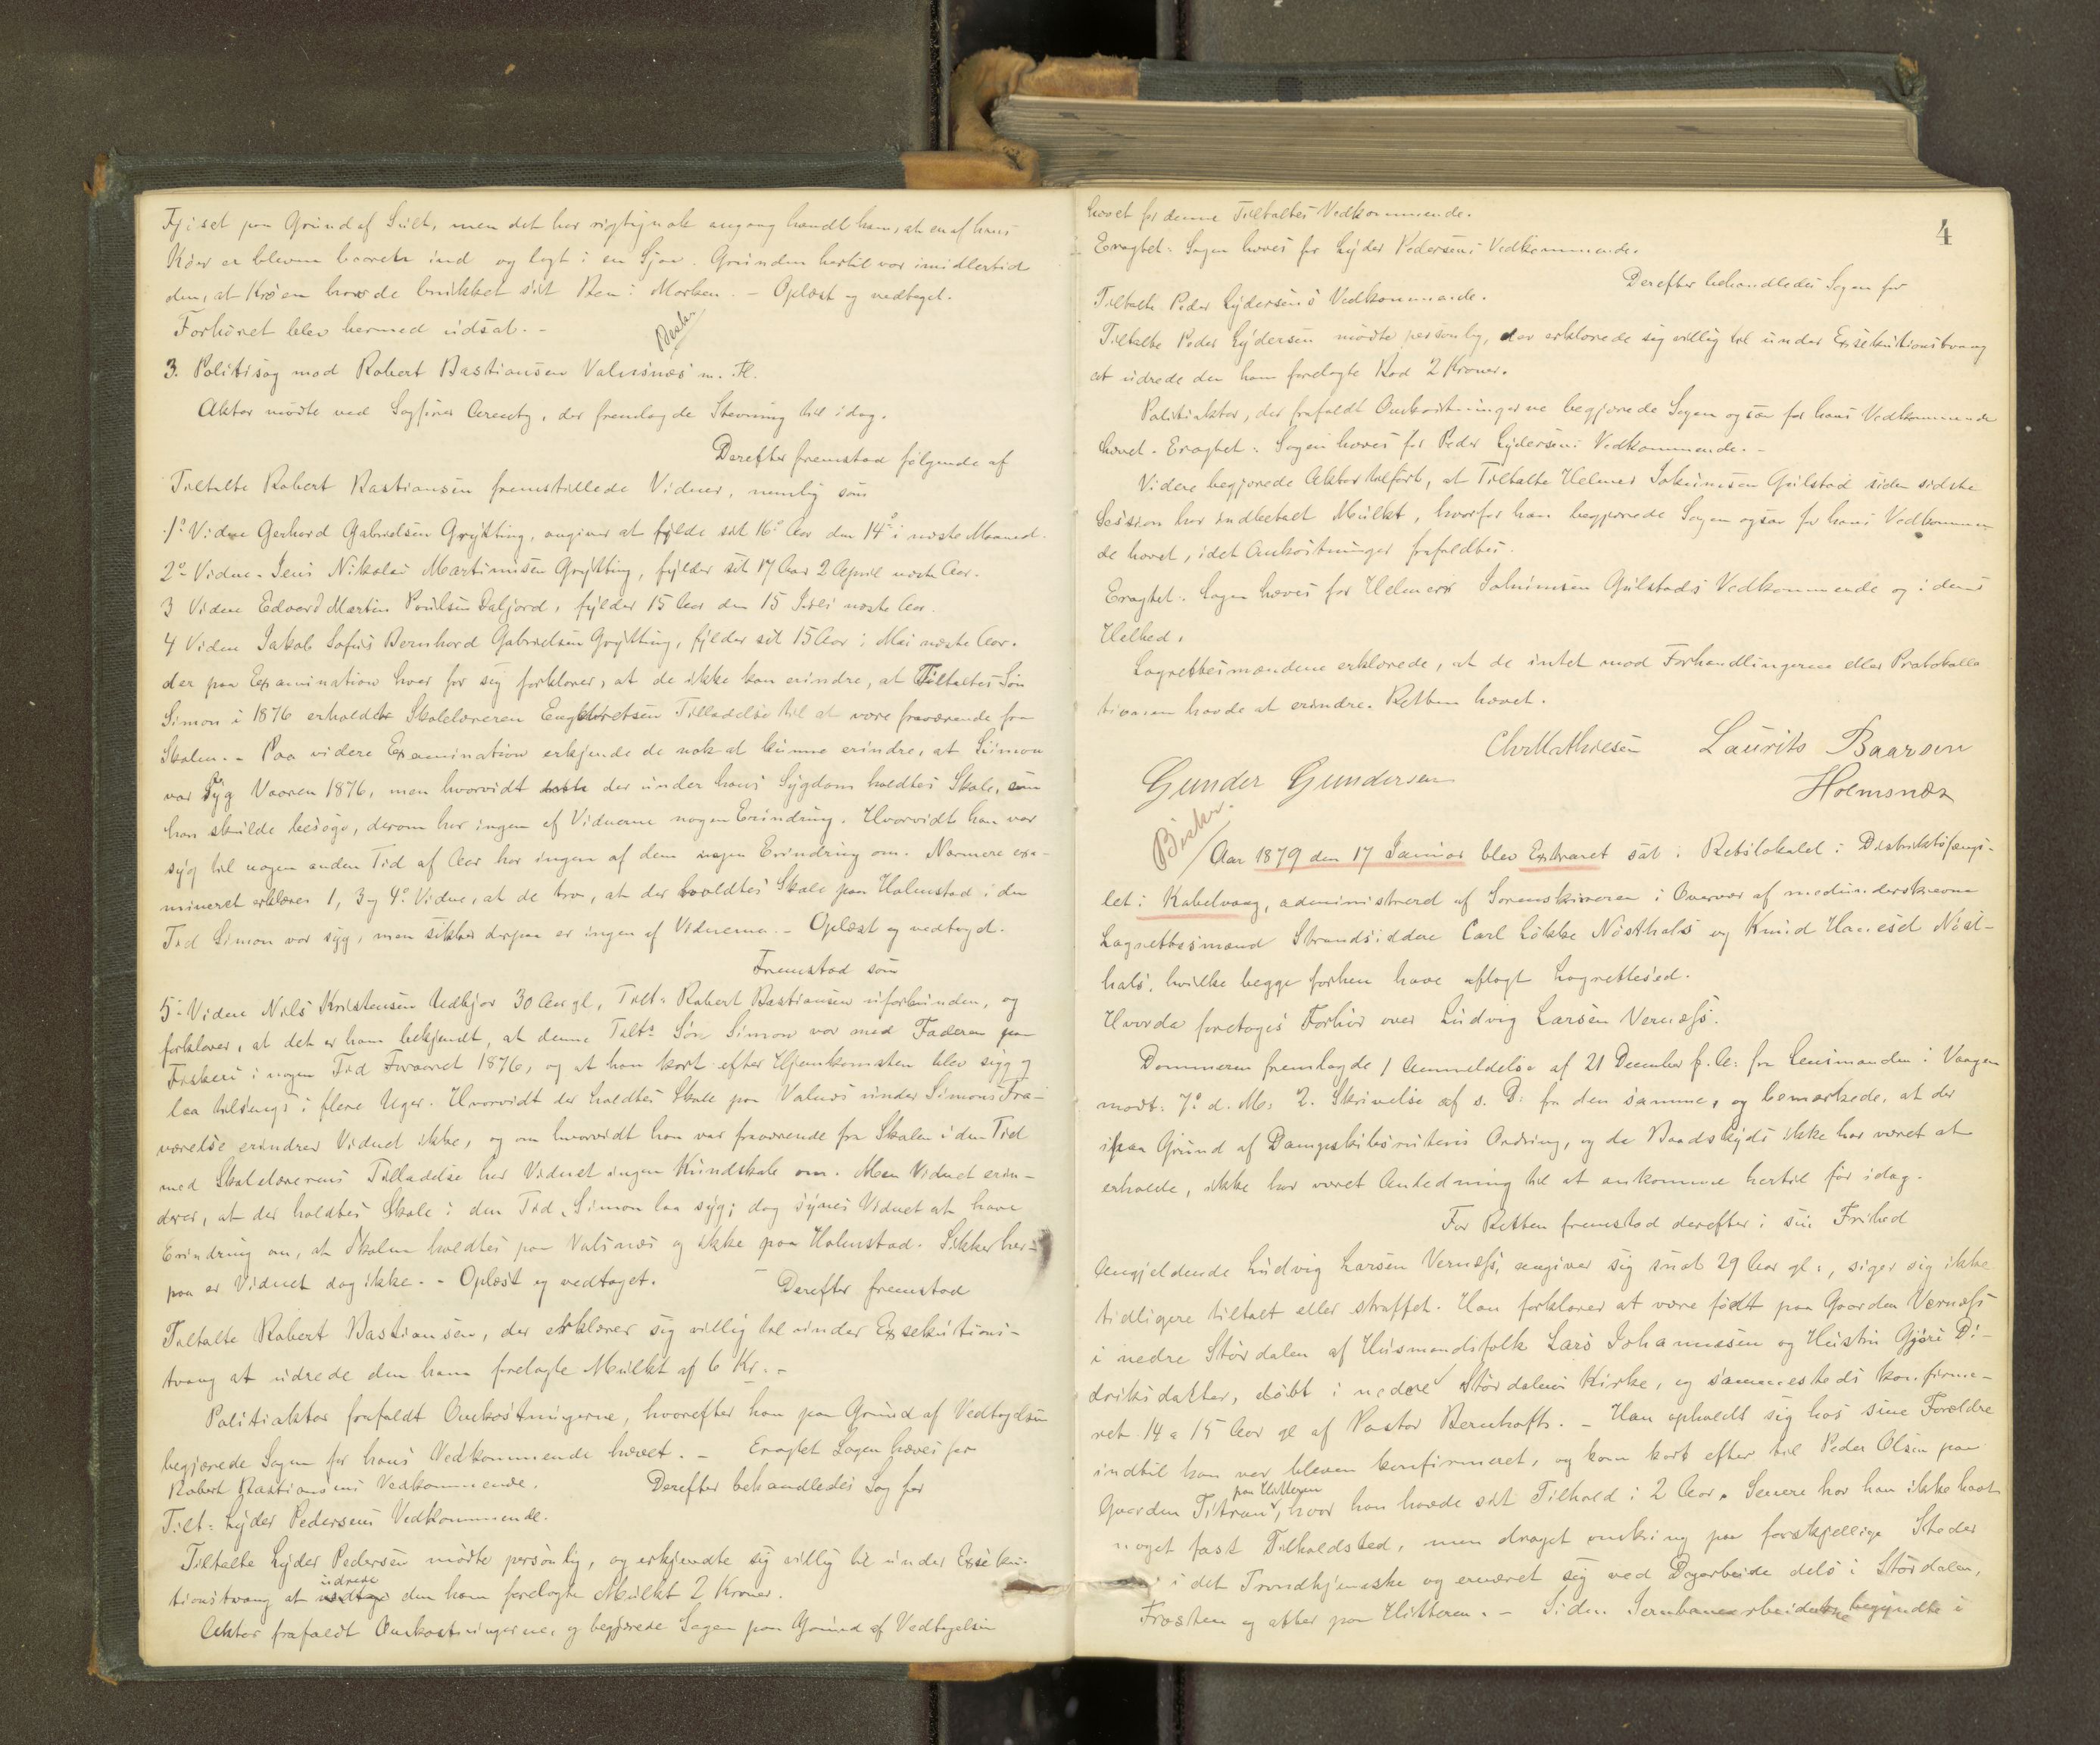 Fjøset paa Grund af Sult, men det har rigtignok engang hændt ham, at en af hans
Køer er bleven baaren ind og lagt i en Sjaa. Grunden hertil var imidlertid
den, at Koen havde brukket sit Ben i Marken. - Oplæst og vedtaget.
Forhøret blev hermed udsat. -
Beskr.
3. Politisag mod Robert Bastiansen Valnsnæs m. Fl.
Aktor mødte ved Sagfører Arentz, der fremlagde Stevning til idag.
Derefter fremstod følgende af
Tiltalte Robert Bastiansen fremstillede Vidner, nemlig som
1° Vidne Gerhard Gabrielsen Grytting, angiver at fylde sit 16° Aar den 14° i næste Maaned.
2° Vidne Jens Nikolai Martinusen Grytting, fylder sit 17 Aar 2 April næste Aar.
3 Vidne Edvard Martin Poulsen Daljord, fylder 15 Aar den 15 Juli næste Aar.
4 Vidne Jakob Sofus Bernhard Gabrielsen Grytting, fylder sit 15 Aar i Mai næste Aar.
der paa Examination hver for sig forklarer, at de ikke kan erindre, at Tiltaltes Søn
Simon i 1876 erholdt Skolelæreren Engebretsen Tilladelse til at være fraværende fra
Skolen. - Paa videre Examination erkjende de nok at kunne erindre, at Simon
var syg Vaaren 1876, men hvorvidt der under hans Sygdom holdtes Skole, som
han skulde besøge, derom har ingen af Vidnerne nogen Erindring. Hvorvidt han var
syg til nogen anden Tid af Aar har ingen af dem nogen Erindring om. Nærmere exa-
mineret erklærer 1, 3 og 4° Vidne, at de tro, at der holdtes Skole paa Holmstad i den
Tid Simon var syg, men sikker derpaa er ingen af Vidnerne. - Oplæst og vedtaget.
Fremstod som
5° Vidne Nils Kristensen Uedhjør 30 Aar gl, Tilt: Robert Bastiansen uforbunden, og
forklarer, at det er ham bekjendt, at denne Tilts Søn Simon var med Faderen paa
Fiskeri i nogen Tid Foraaret 1876, og at han kort efter Hjemkomsten blev syg og
laa tilsengs i flere Uger. Hvorvidt der holdtes Skole paa Valnæs under Simons Fra-
værelse erindrer Vidnet ikke, og om hvorvidt han var fraværende fra Skolen i den Tid
med Skolelærerens Tilladelse har Vidnet ingen Kundskab om. Men Vidnet erin-
drer, at der holdtes Skole i den Tid, Simon laa syg; dog synes Vidnet at have
Erindring om, at Skolen holdtes paa Valsnæs og ikke paa Holmstad. Sikker her-
paa er Vidnet dog ikke. - Oplæst og vedtaget.
Derefter fremstod
Tiltalte Robert Bastiansen, der erklærer sig villig til under Exsekutions-
tvang at udrede den ham forelagte Mulkt af 6 Kr. -
Politiaktor frafaldt Omkostningerne, hvorefter han paa Grund af Vedtagelsen
begjærede Sagen for hans Vedkommende hævet. - Eragtet Sagen hæves for
Robert Bastiansens Vedkommende.
Derefter behandledes Sag for
Tilt: Lyder Pedersens Vedkommende.
Tiltalte Lyder Pedersen mødte personlig, og erkjendte sig villig til under Exseku-
tionstvang at udrede den ham forelagte Mulkt 2 Kroner.
Aktor frafaldt Omkostningerne, og begjærede Sagen paa Grund af Vedtagelsen
4
hævet for denne Tiltaltes Vedkommende.
Eragtet: Sagen hæves for Lyder Pedersens Vedkommende.
Derefter behandledes Sagen for
Tiltalte Peder Lydersens Vedkommende.
Tiltalte Peder Lydersen mødte personlig, der erklærede sig villig til under Exsekutionstvang
at udrede den ham forelagte Bod 2 Kroner.
Politiaktor, der frafaldt Omkostningerne begjærede Sagen ogsaa for hans Vedkommende
hævet. Eragtet: Sagen hæves for Peder Lydersens Vedkommende. -
Videre begjærede Aktor tilført, at Tiltalte Helmer Jokumsen Gulstad siden sidste
Session har indbetalt Mulkt, hvorfor han begjærede Sagen ogsaa for hans Vedkommen-
de hævet, idet Omkostninger frafaldtes.
Eragtet: Sagen hæves for Helmer Jokumsen Gulstads Vedkommende og i dens
Helhed.
Lagrettesmændene erklærede, at de intet mod Forhandlingerne eller Protokolla
tionen havde at erindre. Retten hævet.
Chr Mathiesen Laurits Baarsen
Gunder Gundersen
Holmsnæs
Beskr.
Aar 1879 den 17 Januar blev Extraret sat i Retslokalet i Distriktsfængs-
let i Kabelvaag, administrerd af Sorenskriveren i Overvær af medunderskrevne
Lagrettesmænd Strandsiddere Carl Løkke Nøsthals og Knud Hansen Nøst-
hals, hvilke begge forhen have aflagt Lagrettesed.
Hvorda foretoges Forhør over Ludvig Larsen Vernæss.
Dommeren fremlagde 1 Anmeldelse af 21 December f. A. fra Lensmanden i Vaagen
modt. 7° d. M. 2. Skrivelse af s. D. fra den samme, og bemærkede, at der
paa Grund af Dampskibsrutens Ordning, og da Baadskyds ikke har været at
erholde, ikke har været Anledning til at ankomme hertil før idag.
For Retten fremstod derefter i sin Frihed
Angjeldende Ludvig Larsen Vernæss, angiver sig snat 29 Aar gl:, siger sig ikke
tidligere tiltalt eller straffet. Han forklarer at være født paa Gaarden Vernæss
i nedre Stördalen af Husmandsfolk Lars Johannesen og Hustru Gjøri Di-
driksdatter, døbt i nedre Stördalens Kirke, og sammesteds konfirme-
ret 14 a 15 Aar gl af Pastor Bernhoft. - Han opholdt sig hos sine Forældre
indtil han var bleven konfirmeret, og kom kort efter til Peder Olsen paa
Gaarden Titran paa Hitteren, hvor han havde sit Tilhold i 2 Aar. Senere har han ikke havt
noget fast Tilholdsted, men draget omkring paa forskjellige Steder
i det Trondhjemske og ernæret sig ved Dagarbeide dels i Stördalen,
Frosten og atter paa Hitteren. - Siden Jernbanearbeiderne begyndte i